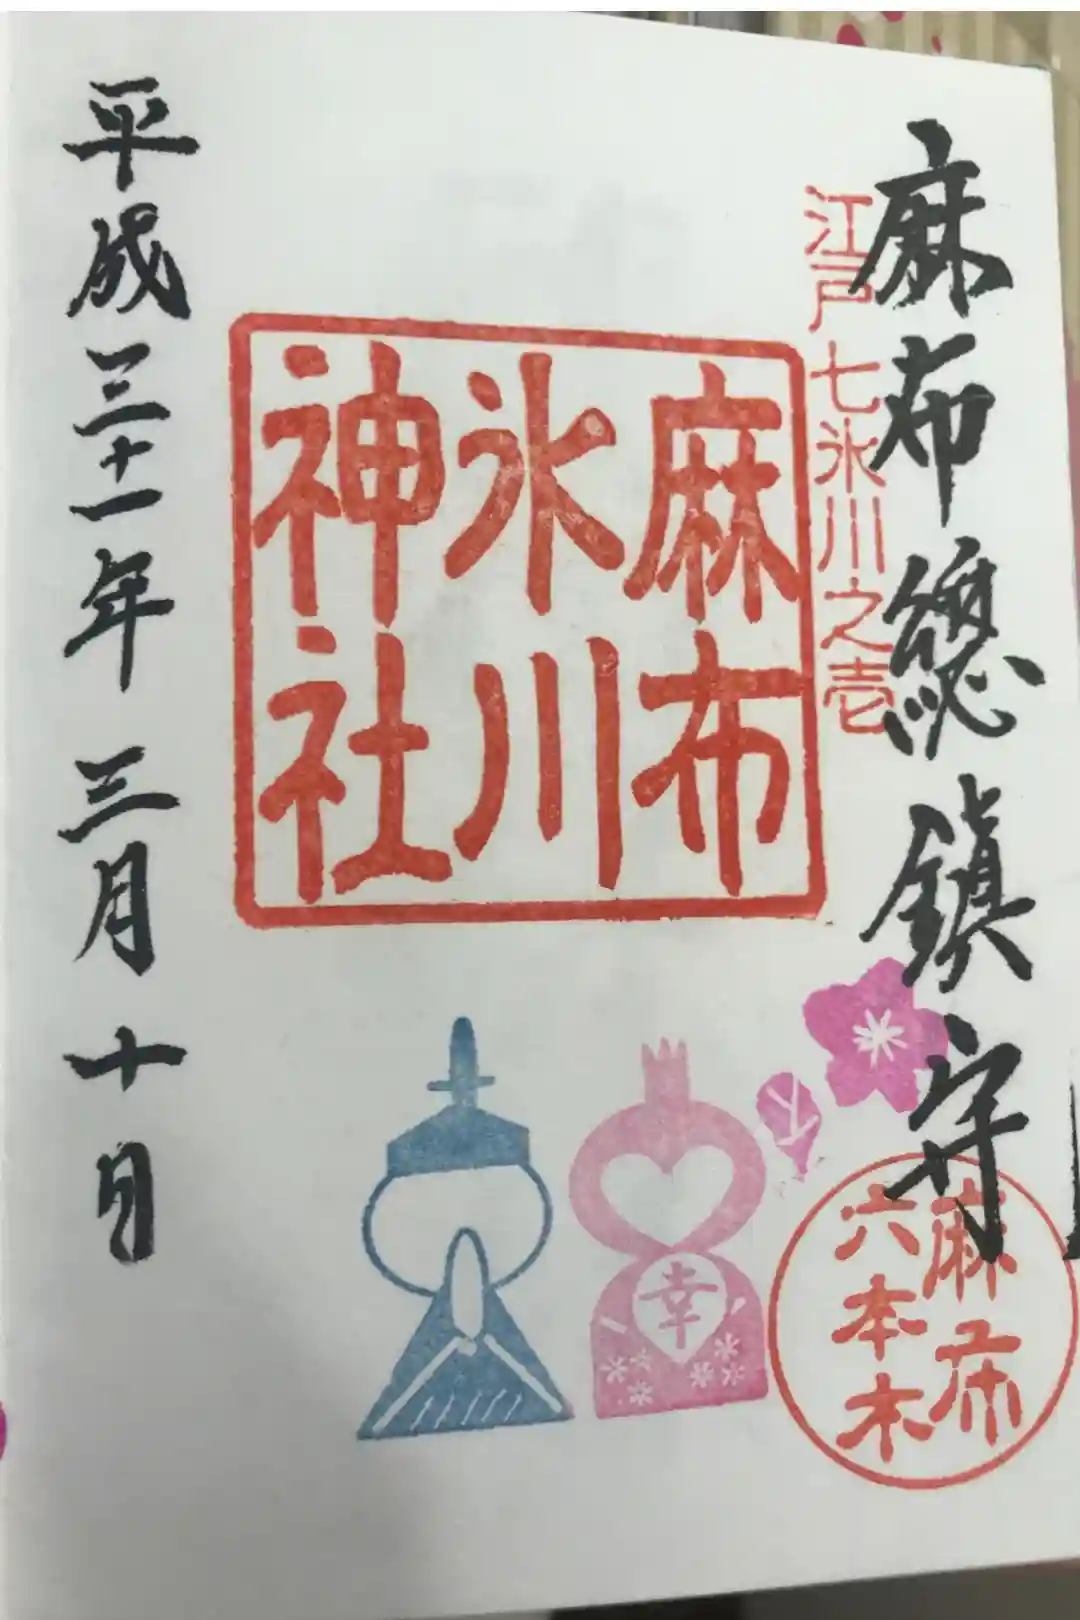 麻布總鎮守
江戸七氷川之壱
麻布
氷川
神社
平成三十一年 三月 十日
麻布
六本木
幸